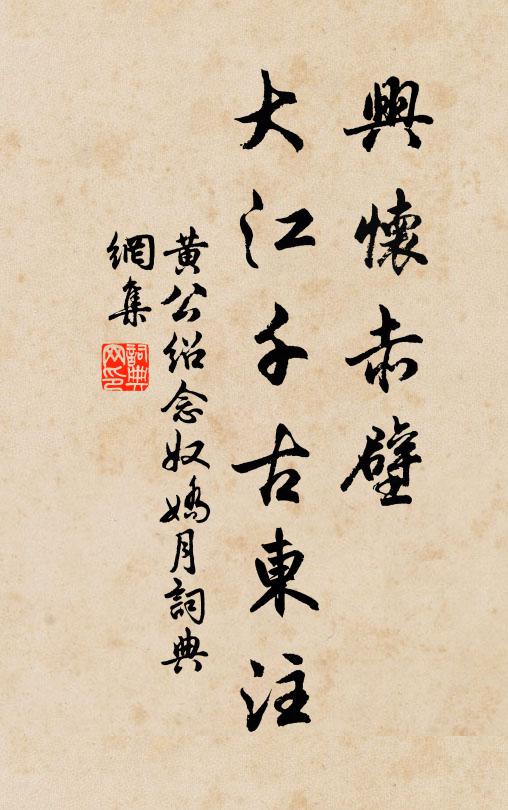 興懷赤壁
大江千古東注
黃公紹念奴嬌月詞典
網集
詞典
網印